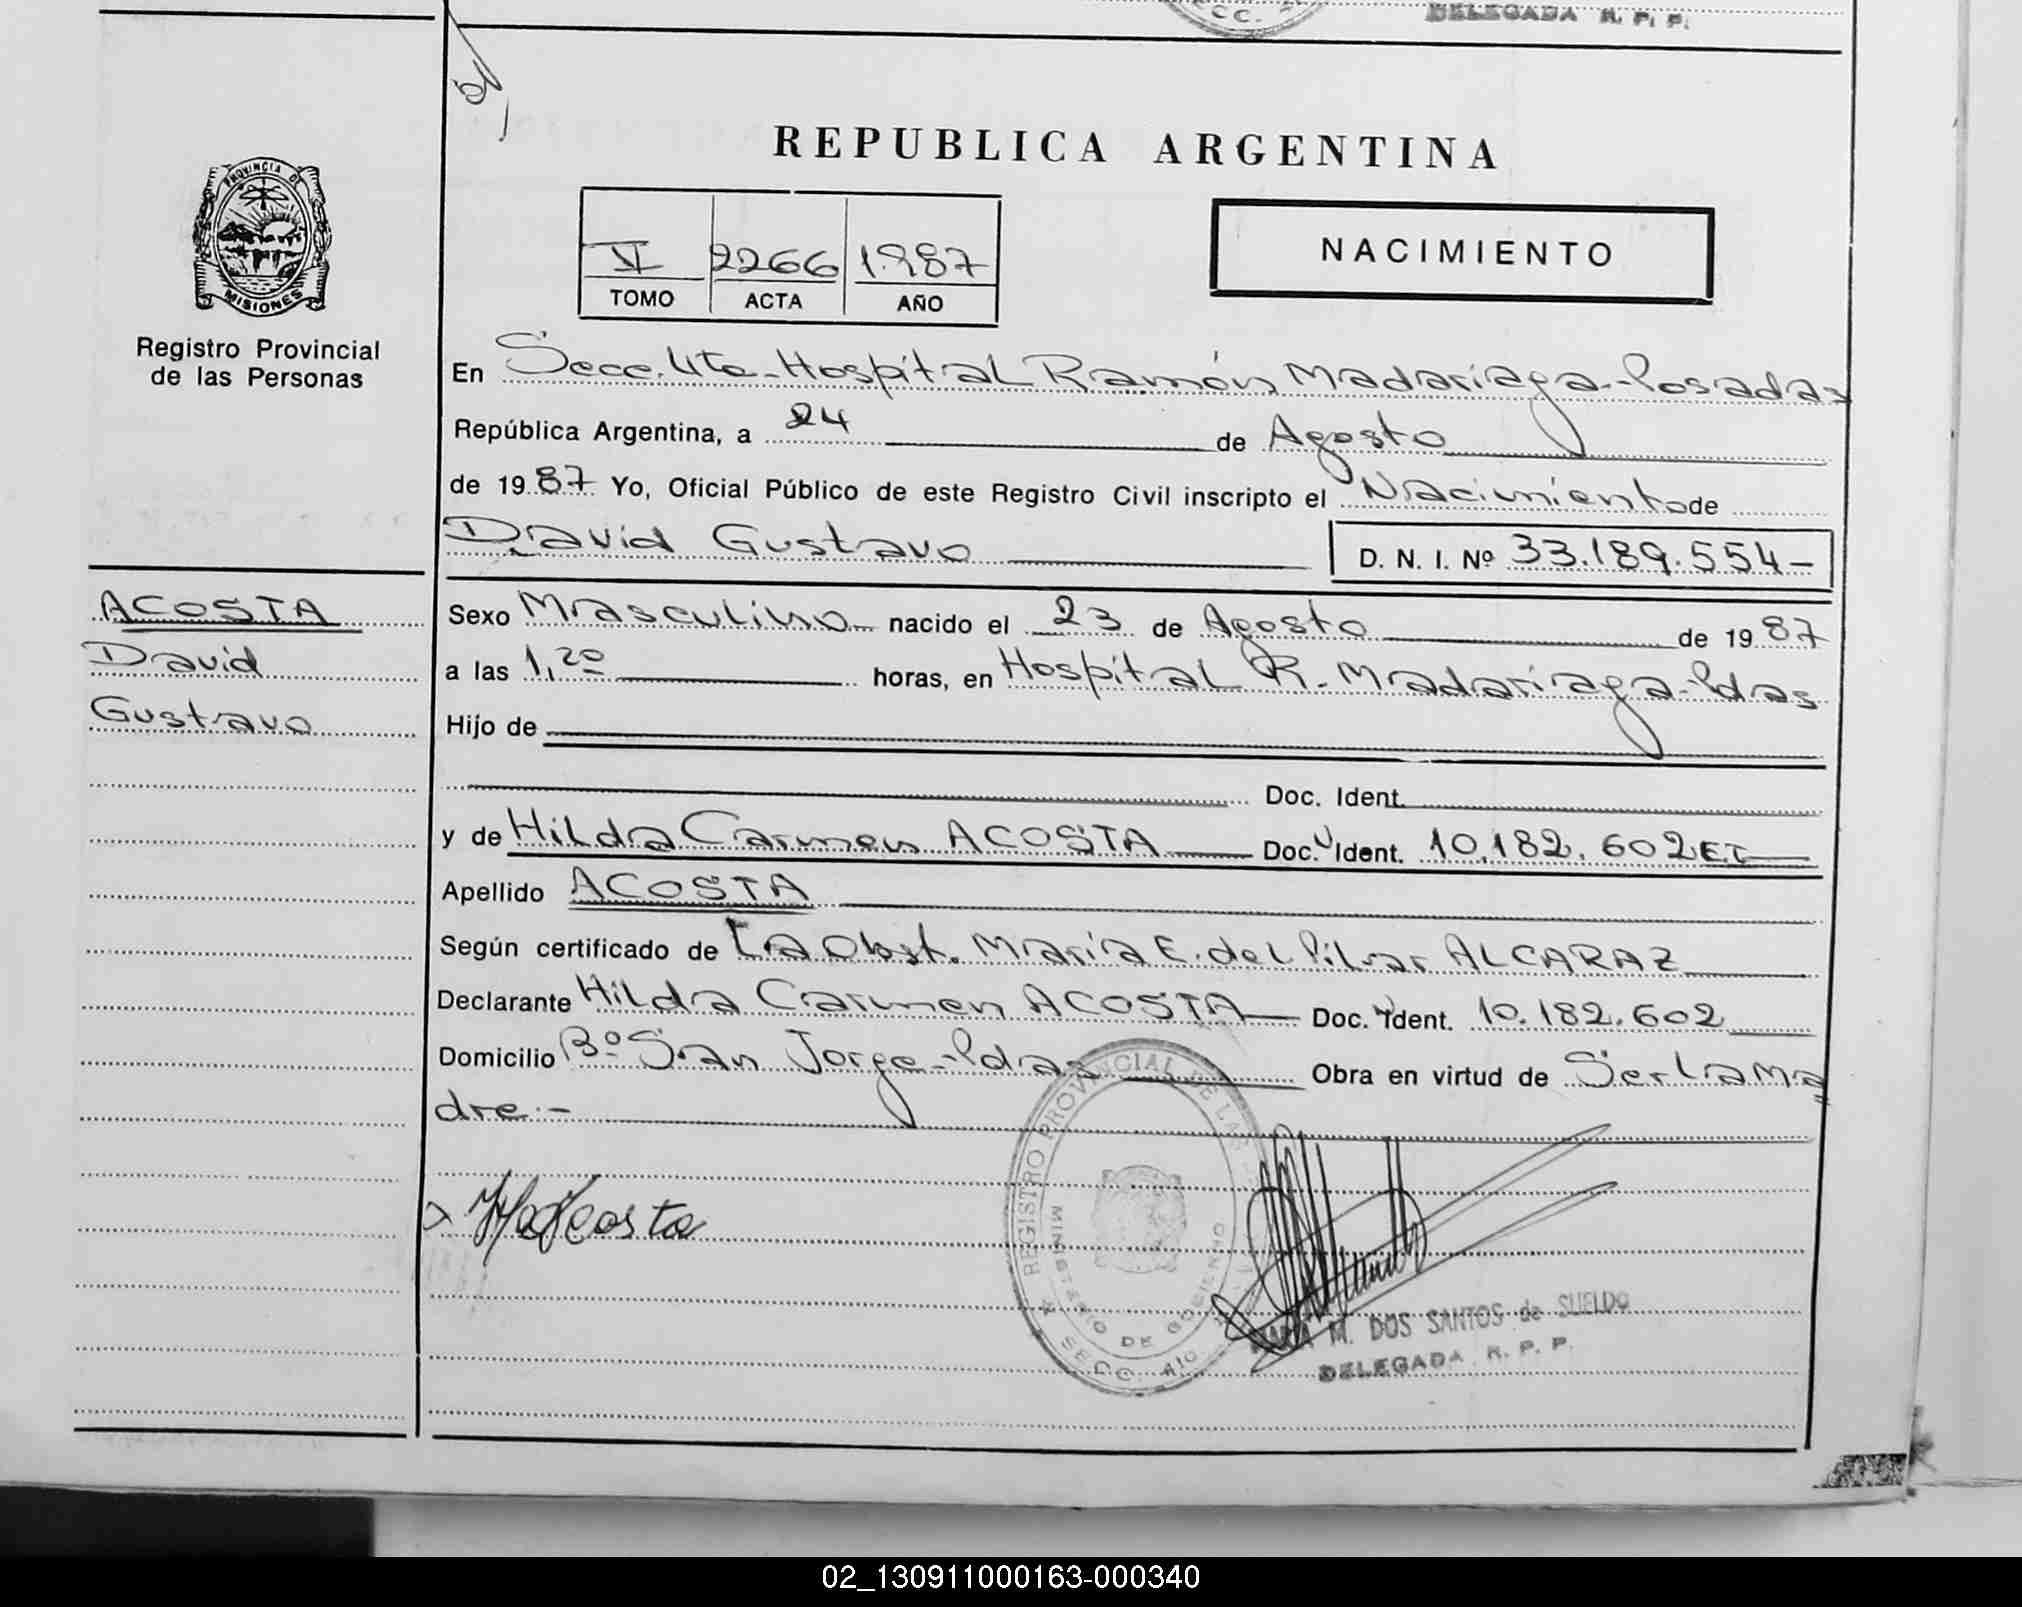 CC.
DELEGADA R. P. P.
REPUBLICA ARGENTINA
PROVINCIA DE
MISIONES
Registro Provincial
de las Personas
VI 2266 1.987
TOMO ACTA AÑO
NACIMIENTO
En Secc. 4ta- Hospital Ramón Madariaga-Posadas
República Argentina, a 24 de Agosto
de 1987 Yo, Oficial Público de este Registro Civil inscripto el Nacimiento de
David Gustavo D. N. I. Nº 33.189.554-
ACOSTA
David
Gustavo
Sexo Masculino nacido el 23 de Agosto de 1987
a las 1,20 horas, en Hospital R. Madariaga-Pdas
Hijo de
Doc. Ident.
y de Hilda Carmen ACOSTA Doc. Ident. 10.182.602
Apellido ACOSTA
Según certificado de La Obst. María E. del Pilar ALCARAZ
Declarante Hilda Carmen ACOSTA Doc. Ident. 10.182.602
Domicilio Bº San Jorge-Pdas Obra en virtud de Ser la ma
dre.-
HCAcosta
REGISTRO PROVINCIAL DE LAS
MINISTERIO DE GOBIERNO
SECC.
MARIA M. DOS SANTOS de SUELDO
DELEGADA R. P. P.
02_130911000163-000340